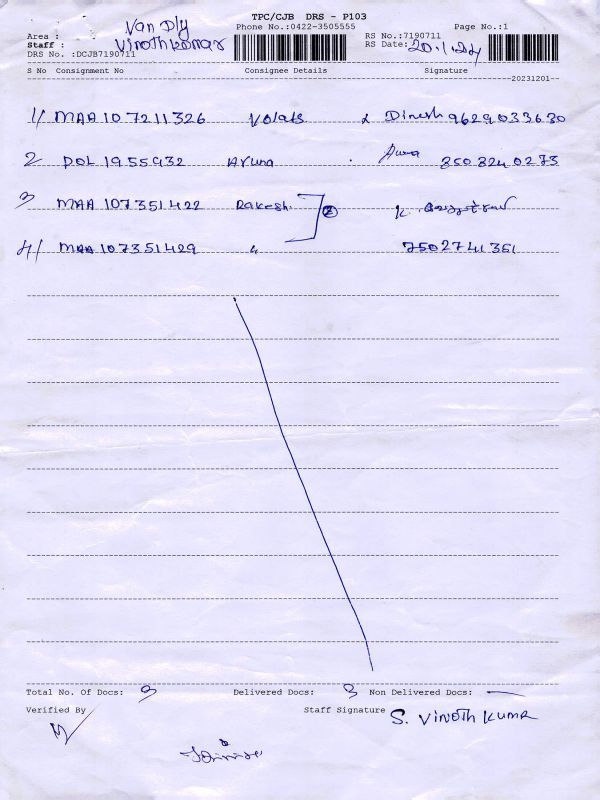 TPC/CJB DRS - P103
Van Dly
Phone No.:0422-3505555
Page No.:1
Area :
RS No.:7190711
Staff : Vinothkumar
RS Date: 20.1.24
DRS No. :DCJB7190711
S No Consignment No Consignee Details Signature
20231201--
1/ MAA 107211326 Volats & Dinesh 9629033630
2 POL 1955932 Aruna Aruna 8508240273
3 MAA 107351422 Rakesh ② K.
4/ MAA 107351429 " 7502741351
Total No. Of Docs: 3 Delivered Docs: 3 Non Delivered Docs: —
Verified By Staff Signature S. Vinoth Kumar